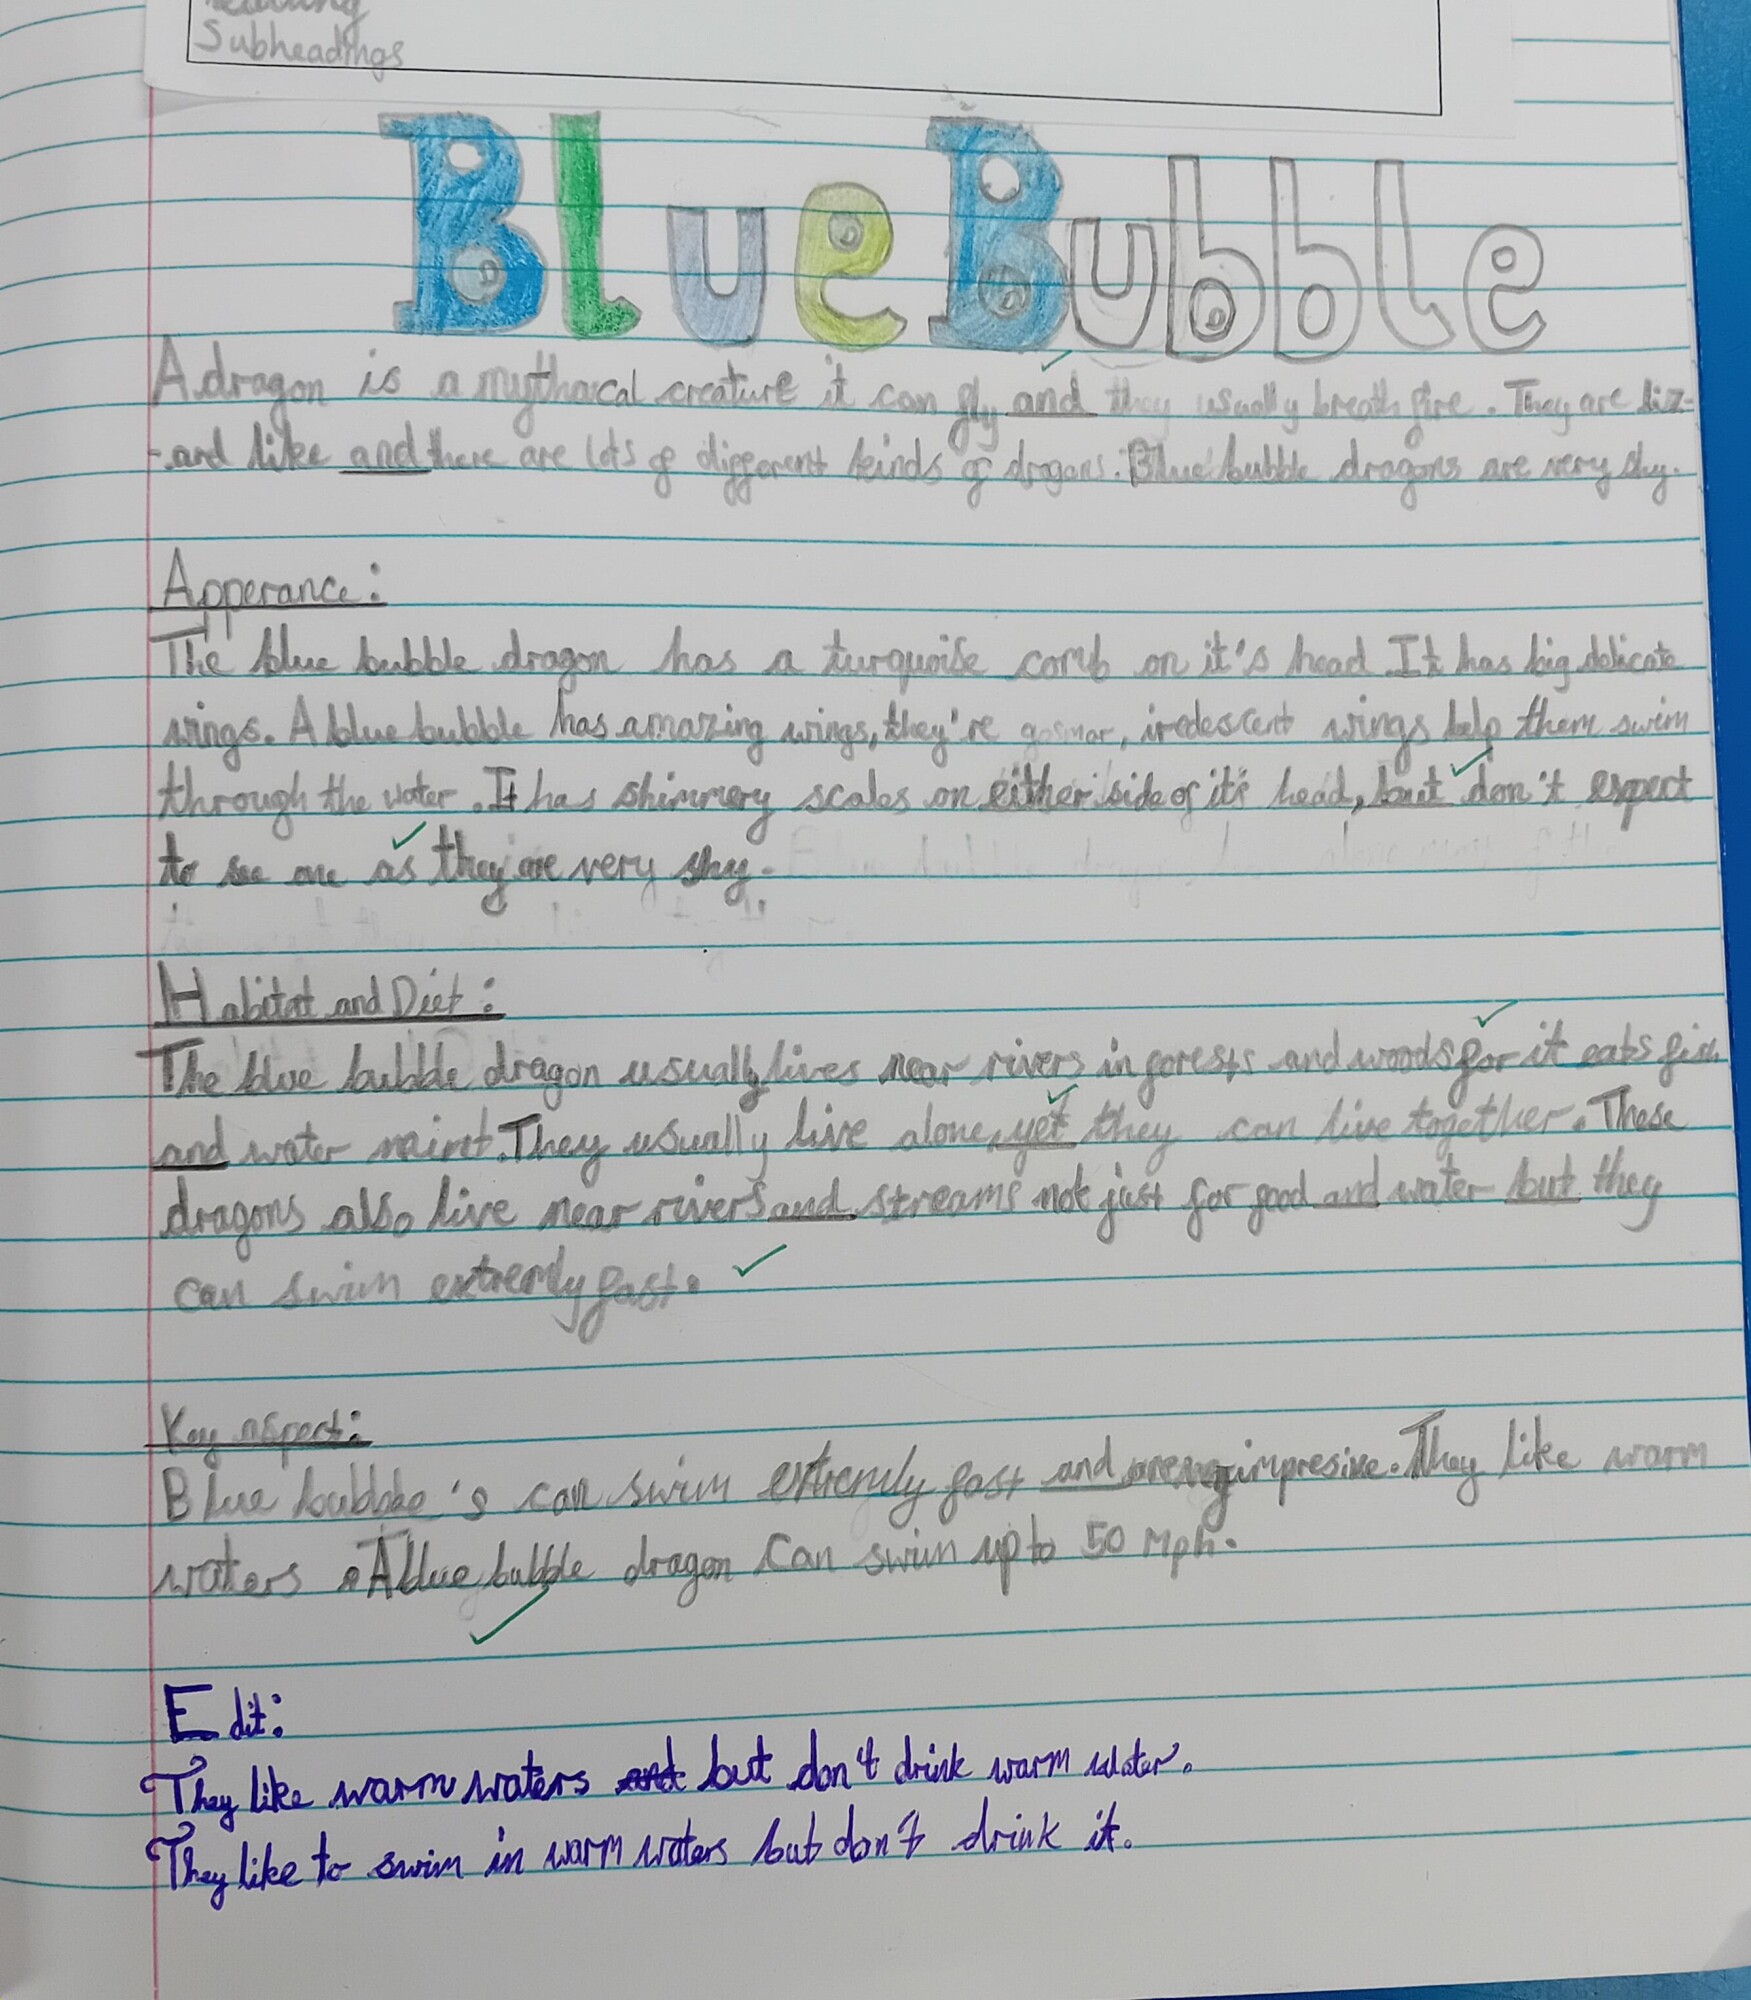 Subheadings
BlueBubble
A dragon is a mythaical creature it can fly and they usually breath fire. They are liz-
-ard like and there are lots of different kinds of dragons. Blue bubble dragons are very shy.
Apperance:
The blue bubble dragon has a turquoise comb on it's head It has big delicate
wings. A blue bubble has amazing wings, they're gosmar, iredescent wings help them swim
through the water. It has shimmery scales on either side of it's head, but don't expect
to see one as they are very shy.
Habitat and Diet:
The blue bubble dragon usually lives near rivers in forests and woods for it eats fish
and water mint. They usually live alone, yet they can live together. These
dragons also live near rivers and streams not just for food and water but they
can swim extremly fast.
Key aspect:
Blue bubble's can swim extremly fast and are very impresive. They like warm
waters. A blue bubble dragon can swim up to 50 mph.
Edit:
They like warm waters but don't drink warm water.
They like to swim in warm waters but don't drink it.